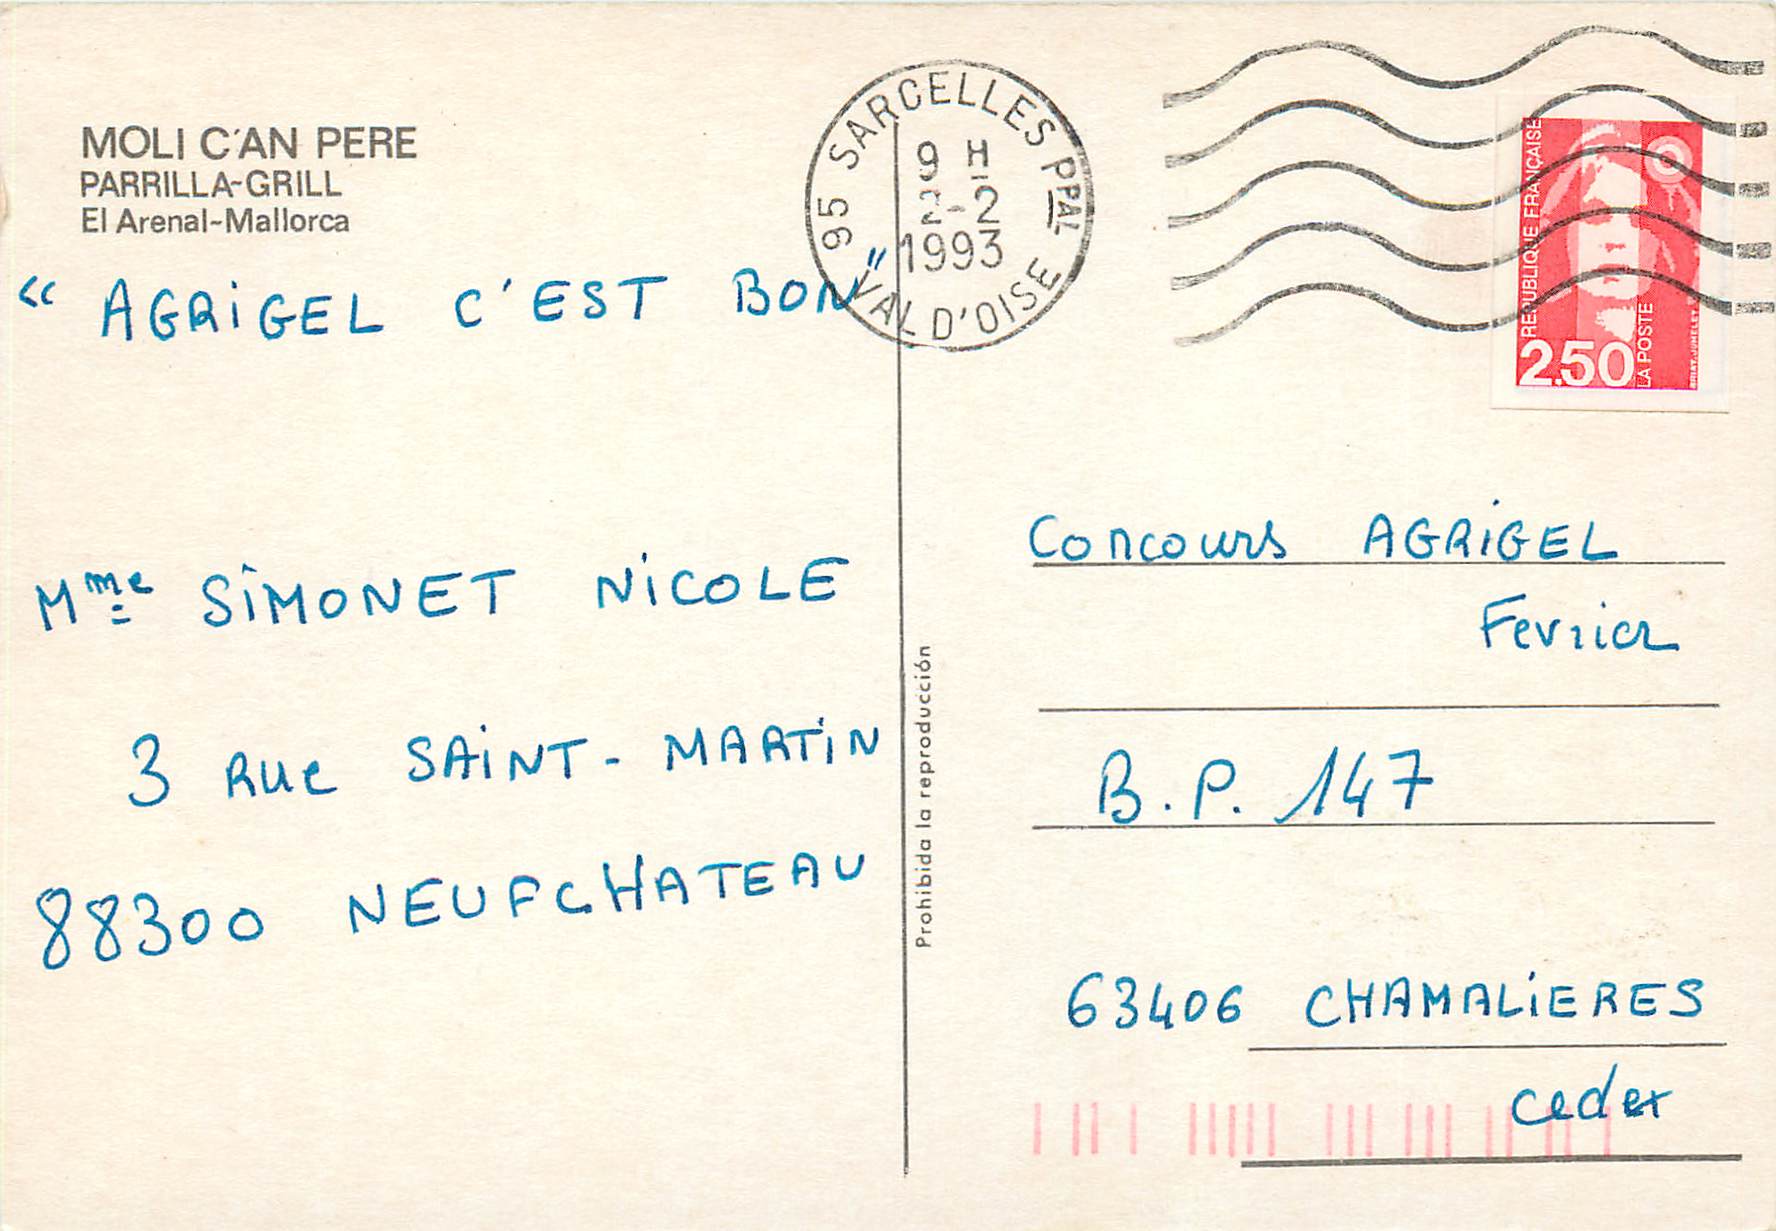 MOLI C'AN PERE
PARRILLA-GRILL
El Arenal-Mallorca
95 SARCELLES PPAL
9 H
2-2
1993
VAL D'OISE
RÉPUBLIQUE FRANÇAISE
2,50
LA POSTE
BRIAT-JUMELET
"AGRIGEL C'EST BON"
Mme SIMONET NICOLE
3 Rue SAINT-MARTIN
88300 NEUFCHATEAU
Prohibida la reproducción
Concours AGRIGEL
Fevrier
B.P. 147
63406 CHAMALIERES
cedex